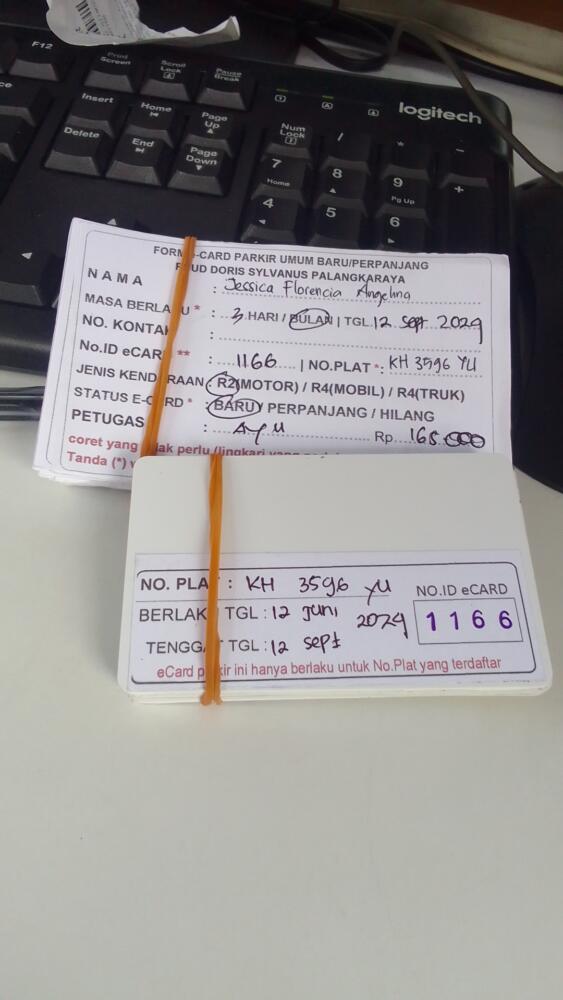 F12
Print Screen
Scroll Lock
Pause Break
logitech
Insert
Home
Page Up
Num Lock
/
*
-
Delete
End
Page Down
7 Home
8
9 Pg Up
+
4
5
6
FORM -CARD PARKIR UMUM BARU/PERPANJANG
UD DORIS SYLVANUS PALANGKARAYA
NAMA : Jessica Florencia Angelina
MASA BERLA U * : 3 HARI / BULAN | TGL 12 Sept 2024
NO. KONTA :
No.ID eCAR ** : 1166 | NO.PLAT *: KH 3596 YU
JENIS KEND RAAN : R2(MOTOR) / R4(MOBIL) / R4(TRUK)
STATUS E-C RD * : BARU / PERPANJANG / HILANG
PETUGAS : Ayu Rp. 165.000
coret yang dak perlu /lingkari yang
Tanda (*)
NO. PLAT : KH 3596 YU
NO.ID eCARD
BERLAK TGL : 12 Juni 2024
1166
TENGGA T TGL : 12 Sept
eCard p kir ini hanya berlaku untuk No.Plat yang terdaftar